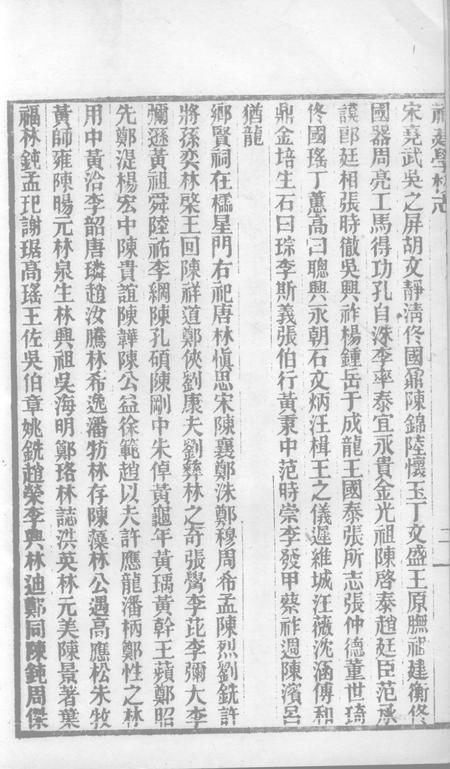 福建學校志
宋堯武吳之屏胡文靜淸佟國鼐陳錦陸懷玉丁文盛王原膴祖建衡佟
國器周亮工馬得功孔自洙李率泰宜永貴金光祖陳啓泰趙廷臣范承
謨郎廷相張時徹吳興祚楊鍾岳于成龍王國泰張所志張仲德董世琦
佟國瑤丁蕙高曰聰興永朝石文炳汪楫王之儀遲維城汪薇沈涵傅和
鼎金培生石曰琮李斯義張伯行黃秉中范時崇李發甲蔡祚週陳濱呂
猶龍
鄉賢祠在櫺星門右祀唐林愼思宋陳襄鄭洙鄭穆周希孟陳烈劉銑許
將孫奕林槩王回陳祥道鄭俠劉康夫劉彝林之奇張駕李芘李彌大李
彌遜黃祖舜陸祐李綱陳孔碩陳剛中朱倬黃龜年黃瑀黃幹王蘋鄭昭
先鄭湜楊宏中陳貴誼陳韡陳公益徐範趙以夫許應龍潘柄鄭性之林
用中黃洽李韶唐璘趙汝騰林希逸潘牥林存陳藻林公遇高應松朱牧
黃師雍陳暘元林泉生林興祖吳海明鄭珞林誌洪英林元美陳景著葉
福林鈍孟玘謝琚高瑤王佐吳伯章姚銑趙榮李典林迪鄭同陳鈍周傑